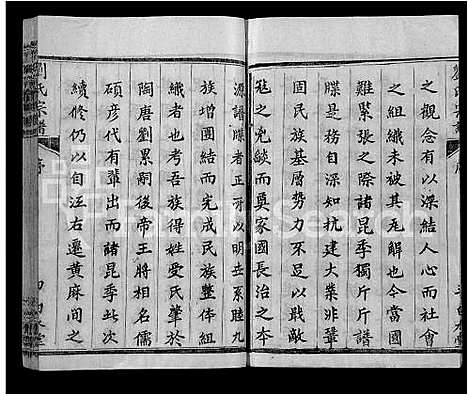 之觀念有以深結人心而社會
之組織未被其瓦解也今當國
難緊張之際諸昆季獨斤斤譜
牒是務自深知抗建大業非鞏
固民族基層勢力不足以戡敵
氛之兇燄而奠家國長治之本
源譜牒者正可以上系睦九
族增團結而完成民族整體組
織者也考吾族得姓受氏肇於
陶唐劉累嗣後帝王將相名儒
碩彥代有輩出而諸昆季此次
續修仍以自江右遷黃麻間之
劉氏宗譜
序